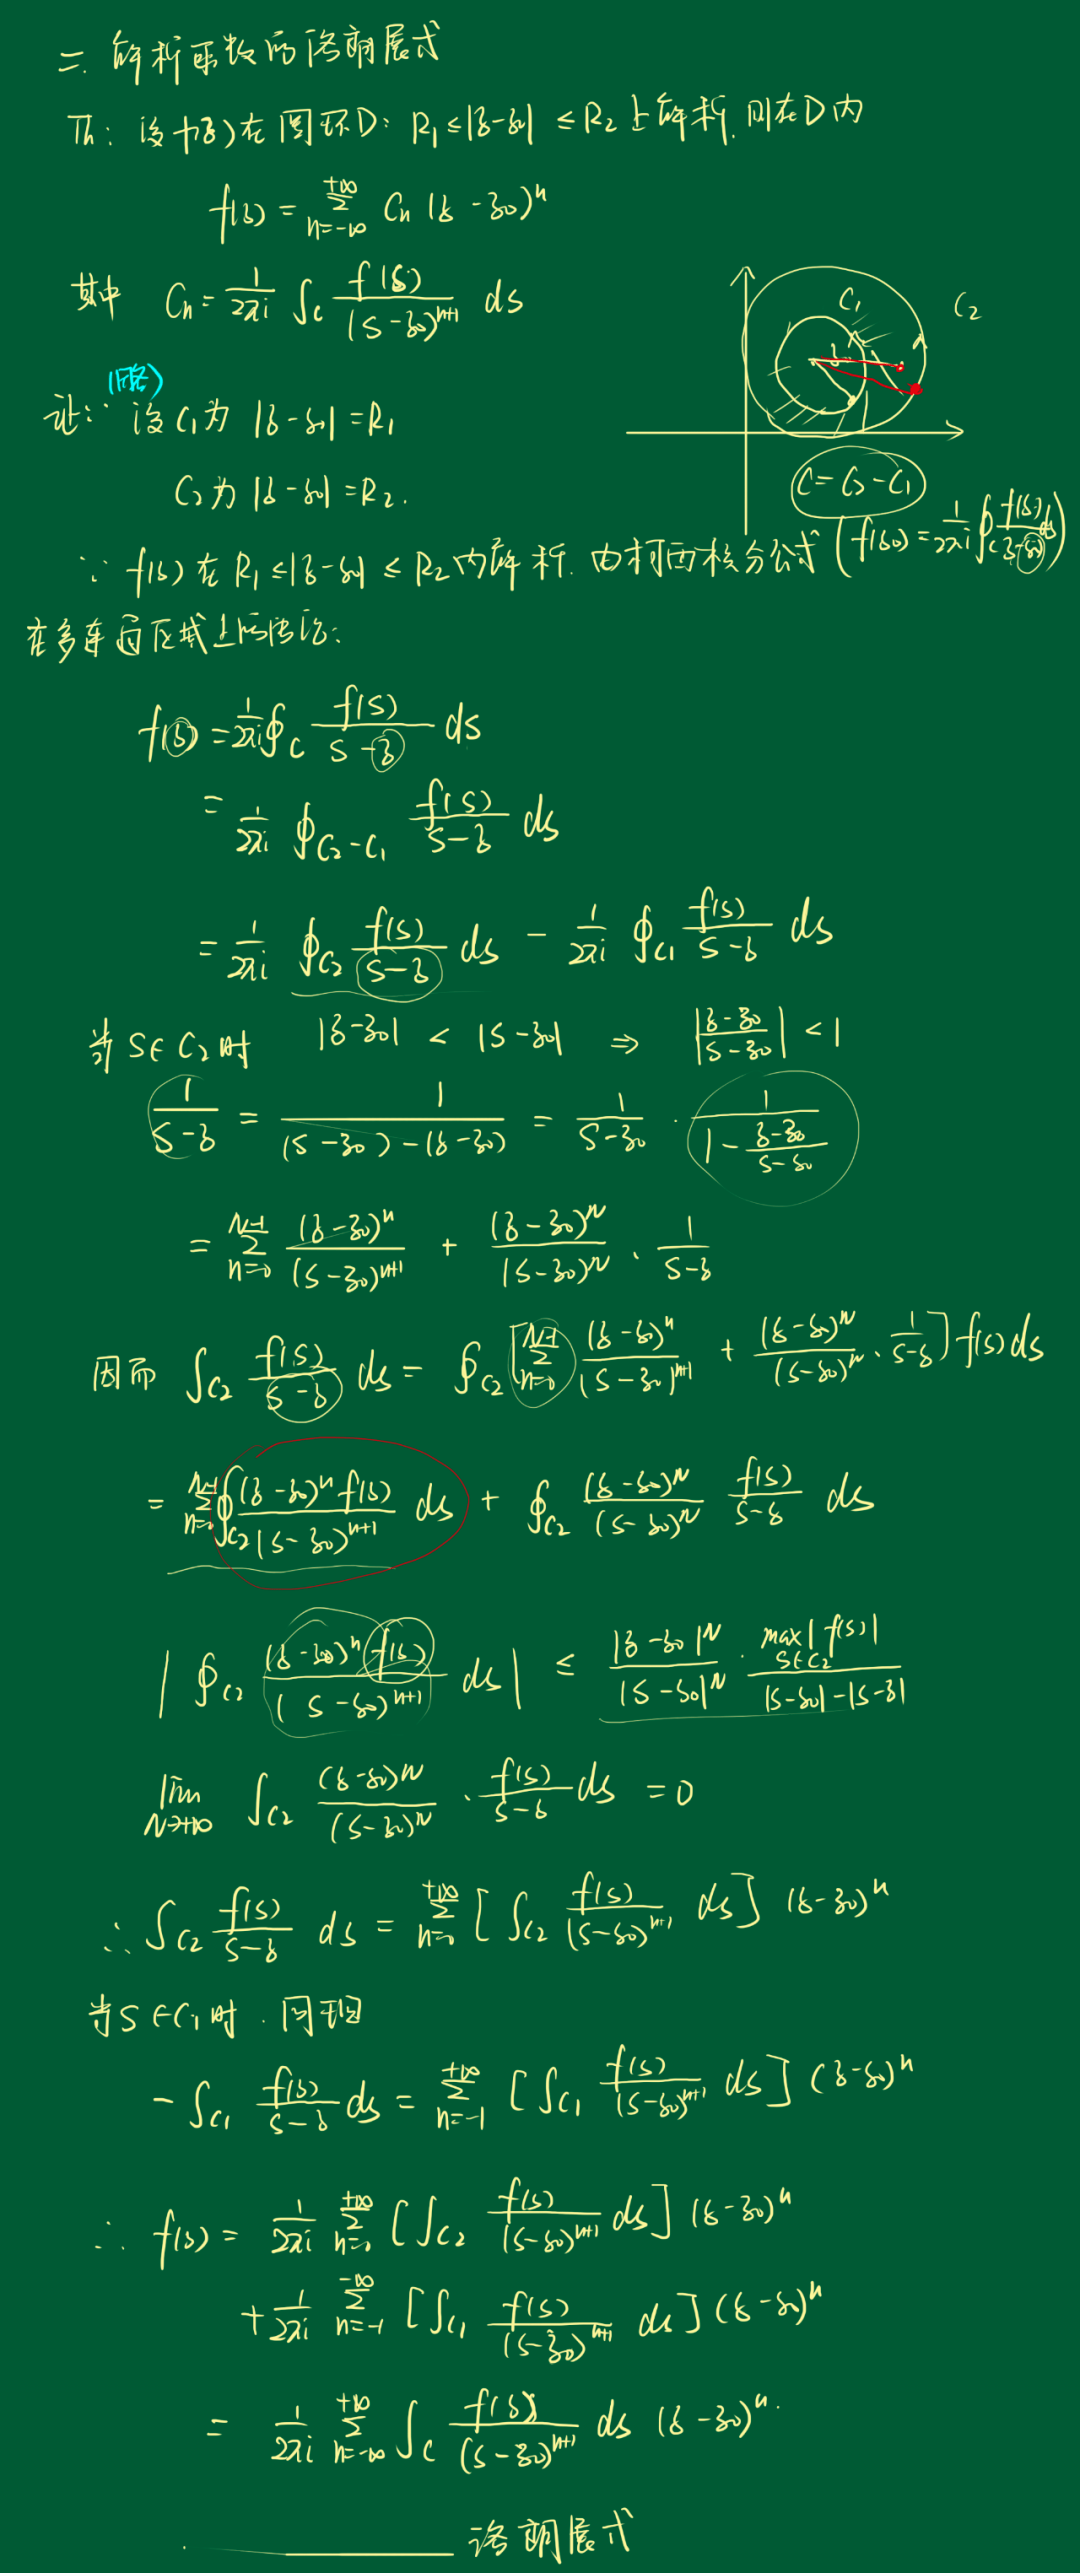 二. 解析函数的洛朗展式
Th: 设f(z)在圆环D: R₁≤|z-z₀|≤R₂上解析. 则在D内
f(z) = Σ_{n=-∞}^{+∞} Cₙ (z-z₀)ⁿ
其中 Cₙ = 1/(2πi) ∫_C f(s)/(s-z₀)^{n+1} ds
C₁ C₂
(略)
证: 设C₁为 |z-z₀|=R₁
C₂为 |z-z₀|=R₂.
C=C₂-C₁
∵ f(z)在R₁≤|z-z₀|≤R₂内解析. 由柯西积分公式 (f(z₀) = 1/(2πi) ∮_C f(z)/(z-z₀) dz)
在多连通区域上的结论:
f(z) = 1/(2πi) ∮_C f(s)/(s-z) ds
= 1/(2πi) ∮_{C₂-C₁} f(s)/(s-z) ds
= 1/(2πi) ∮_{C₂} f(s)/(s-z) ds - 1/(2πi) ∮_{C₁} f(s)/(s-z) ds
当s∈C₂时 |z-z₀| < |s-z₀| ⇒ |(z-z₀)/(s-z₀)| < 1
1/(s-z) = 1/((s-z₀)-(z-z₀)) = 1/(s-z₀) · 1/(1-(z-z₀)/(s-z₀))
= Σ_{n=0}^{N-1} (z-z₀)ⁿ/(s-z₀)^{n+1} + (z-z₀)^N/(s-z₀)^N · 1/(s-z)
因而 ∫_{C₂} f(s)/(s-z) ds = ∮_{C₂} [Σ_{n=0}^{N-1} (z-z₀)ⁿ/(s-z₀)^{n+1} + (z-z₀)^N/(s-z₀)^N · 1/(s-z)] f(s) ds
= Σ_{n=0}^{N-1} ∮_{C₂} (z-z₀)ⁿ f(s)/(s-z₀)^{n+1} ds + ∮_{C₂} (z-z₀)^N/(s-z₀)^N f(s)/(s-z) ds
|∮_{C₂} (z-z₀)ⁿ f(s)/(s-z₀)^{n+1} ds| ≤ |z-z₀|^N/|s-z₀|^N · max_{s∈C₂}|f(s)|/(|s-z₀|-|s-z|)
lim_{N→+∞} ∫_{C₂} (z-z₀)^N/(s-z₀)^N · f(s)/(s-z) ds = 0
∴ ∫_{C₂} f(s)/(s-z) ds = Σ_{n=0}^{+∞} [∫_{C₂} f(s)/(s-z₀)^{n+1} ds] (z-z₀)ⁿ
当s∈C₁时. 同理
-∫_{C₁} f(s)/(s-z) ds = Σ_{n=-1}^{+∞} [∫_{C₁} f(s)/(s-z₀)^{n+1} ds] (z-z₀)ⁿ
∴ f(z) = 1/(2πi) Σ_{n=0}^{+∞} [∫_{C₂} f(s)/(s-z₀)^{n+1} ds] (z-z₀)ⁿ
+ 1/(2πi) Σ_{n=-1}^{-∞} [∫_{C₁} f(s)/(s-z₀)^{n+1} ds] (z-z₀)ⁿ
= 1/(2πi) Σ_{n=-∞}^{+∞} ∫_C f(s)/(s-z₀)^{n+1} ds (z-z₀)ⁿ.
—— 洛朗展式